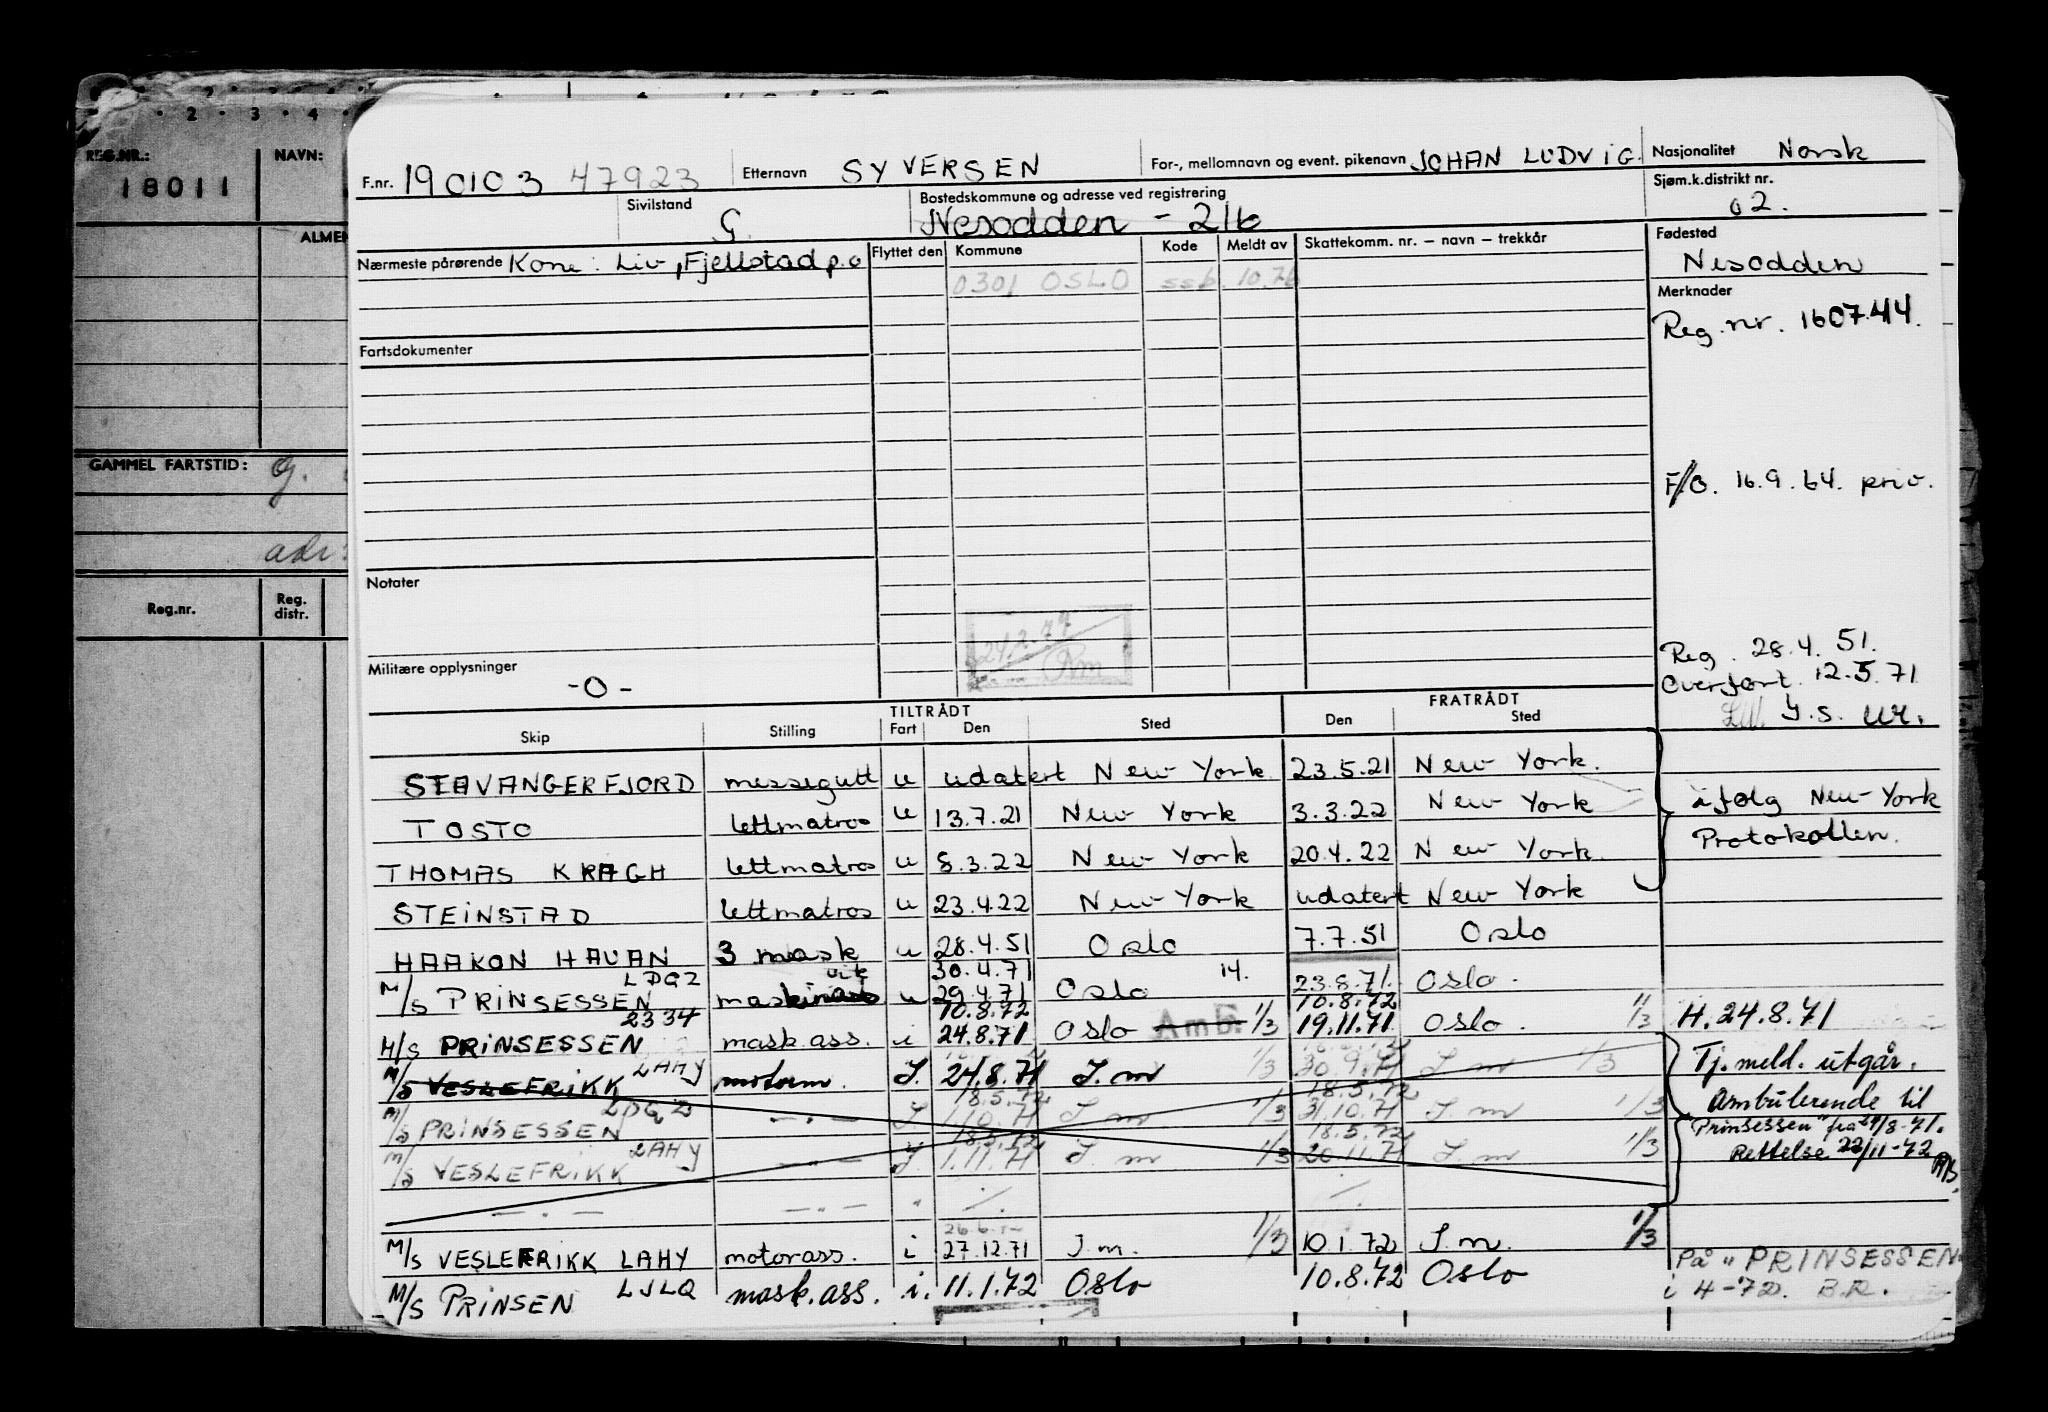 REG.NR.: NAVN:
18011
ALMEN
GAMMEL FARTSTID:
Reg.nr. Reg. distr.
F.nr. 190103 47923 Etternavn SYVERSEN For-, mellomnavn og event. pikenavn JOHAN LUDVIG. Nasjonalitet Norsk
Sivilstand G. Bostedskommune og adresse ved registrering Nesodden - 216 Sjøm.k.distrikt nr. 02.
Nærmeste pårørende Kone: Liv, Fjellstad p.o Flyttet den Kommune Kode Meldt av Skattekomm. nr. – navn – trekkår Fødested
0301 OSLO ssb. 10.76 Nesodden
Merknader
Reg. nr. 160744.
Fartsdokumenter
F/O. 16.9.64. priv.
Notater
24.2.77
Rm
Militære opplysninger -0-
Reg. 28.4.51.
Overført. 12.5.71
Y.s. ur.
TILTRÅDT FRATRÅDT
Skip Stilling Fart Den Sted Den Sted
STAVANGERFJORD messegutt u udatert New York 23.5.21 New York.
TOSTO lettmatros u 13.7.21 New York 3.3.22 New York ifølg New York
THOMAS KRAGH lettmatros u 8.3.22 New York 20.4.22 New York. Protokollen.
STEINSTAD lettmatros u 23.4.22 New York udatert New York
HAAKON HAUAN 3 mask u 28.4.51 Oslo 7.7.51 Oslo
LDQZ vik 30.4.71 14.
M/S PRINSESSEN u 29.4.71 Oslo 23.8.71. Oslo.
2334 10.8.72 10.8.72
M/S PRINSESSEN mask.ass. i 24.8.71 Oslo Amb. 1/3 19.11.71 Oslo. 1/3 H.24.8.71
M/S VESLEFRIKK LAHY motorm. I. 24.8.71 I.m 1/3 30.9.71 I.m 1/3 Tj. meld. utgår.
18.5.72 18.5.72
M/S PRINSESSEN LDQZ — " — I 1.10.71 I.m 1/3 31.10.71 I.m 1/3 Ambulerende til
18.5.72 18.5.72 "Prinsessen" fra 24/8-71.
M/S VESLEFRIKK LAHY — " — I. 1.11.71 I.m 1/3 20.11.71 I.m 1/3 Rettelse 22/11-72
— " — — " — "
M/S VESLEFRIKK LAHY motorass. i 27.12.71 I.m. 1/3 10.1.72 I.m. 1/3
M/S PRINSEN LJLQ mask.ass. i. 11.1.72 Oslo 10.8.72 Oslo
På "PRINSESSEN
i H-72. B.R.